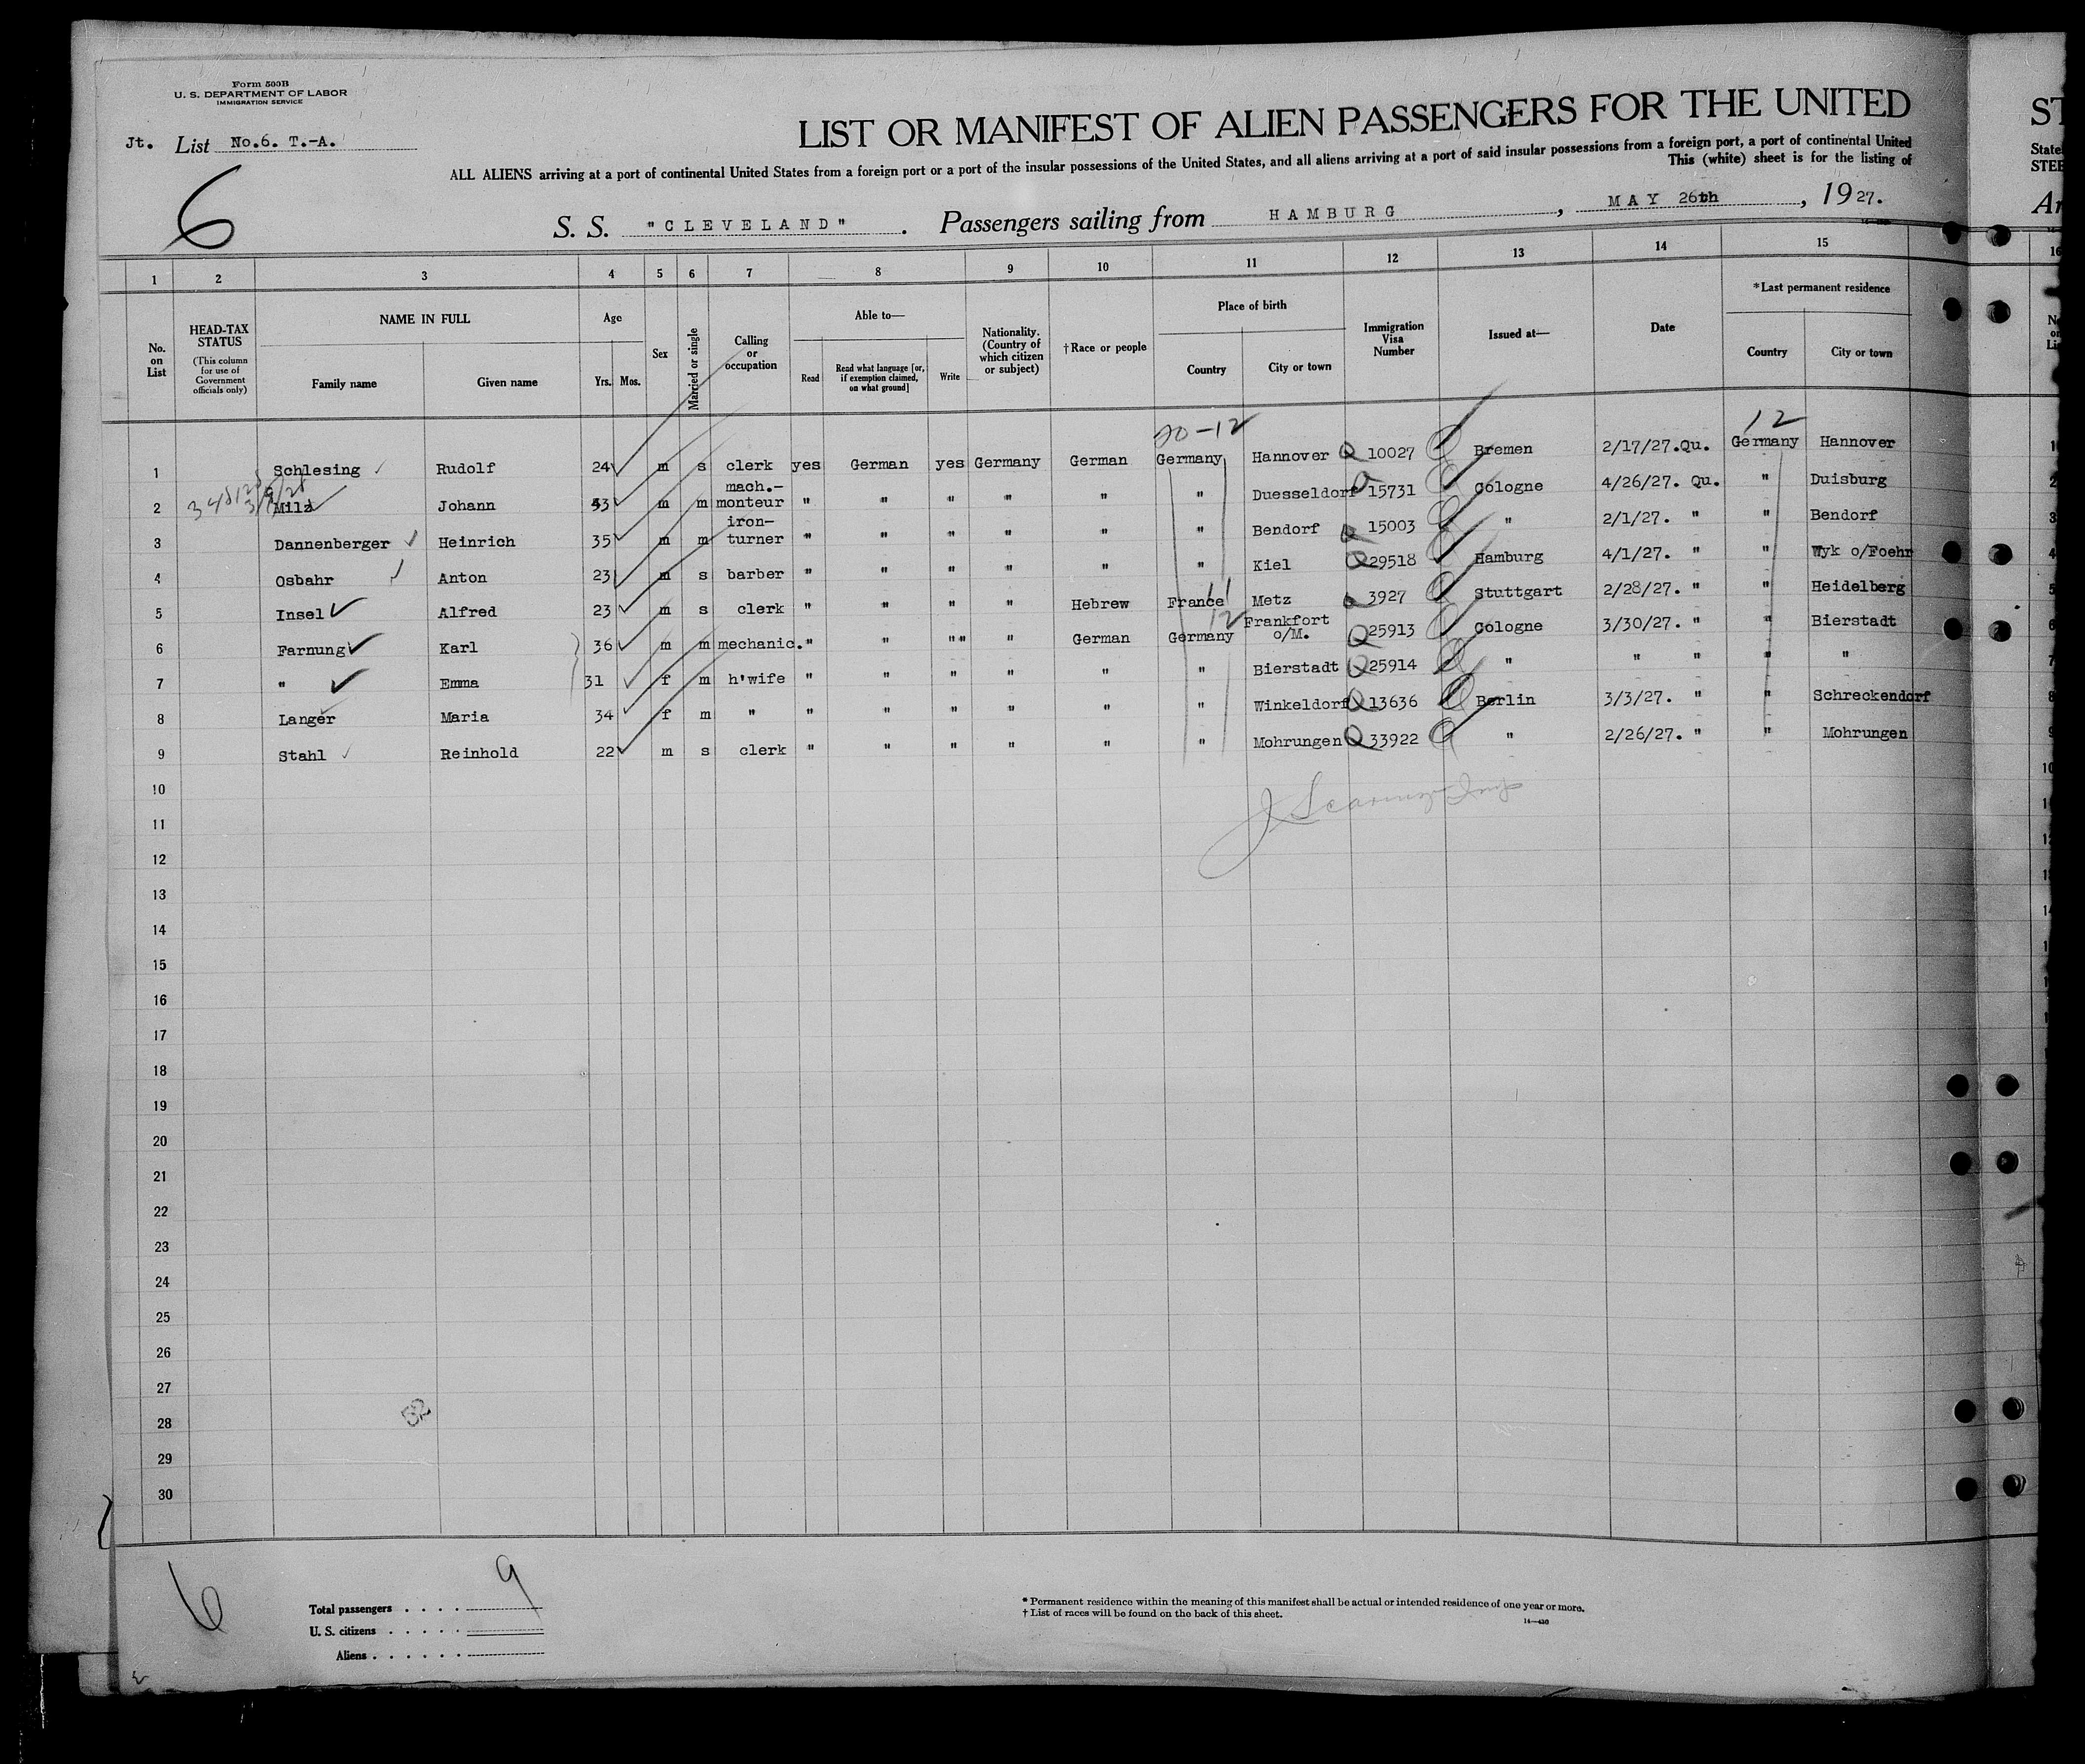 Form 500B
U. S. DEPARTMENT OF LABOR
IMMIGRATION SERVICE
Jt. List No.6. T.-A.
6
LIST OR MANIFEST OF ALIEN PASSENGERS FOR THE UNITED
ALL ALIENS arriving at a port of continental United States from a foreign port or a port of the insular possessions of the United States, and all aliens arriving at a port of said insular possessions from a foreign port, a port of continental United
This (white) sheet is for the listing of
S. S. "CLEVELAND". Passengers sailing from HAMBURG, MAY 26th, 1927.
ST
State
STEE
Ar
1 2 3 4 5 6 7 8 9 10 11 12 13 14 15 16
No. on List
HEAD-TAX STATUS
(This column for use of Government officials only)
NAME IN FULL
Family name Given name
Age
Yrs. Mos.
Sex
Married or single
Calling or occupation
Able to—
Read Read what language [or, if exemption claimed, on what ground] Write
Nationality. (Country of which citizen or subject)
†Race or people
Place of birth
Country City or town
Immigration Visa Number
Issued at—
Date
*Last permanent residence
Country City or town
20-12 12
1 Schlesing Rudolf 24 m s clerk yes German yes Germany German Germany Hannover Q 10027 Bremen 2/17/27.Qu. Germany Hannover
2 Milz Johann 43 m m mach.-monteur " " " " " " Duesseldorf 15731 Cologne 4/26/27. Qu. " Duisburg
3 Dannenberger Heinrich 35 m m iron-turner " " " " " " Bendorf Q 15003 " 2/1/27. " " Bendorf
4 Osbahr Anton 23 m s barber " " " " " " Kiel Q 29518 Hamburg 4/1/27. " " Wyk o/Foehr
5 Insel Alfred 23 m s clerk " " " " Hebrew France Metz Q 3927 Stuttgart 2/28/27. " " Heidelberg
12
6 Farnung Karl 36 m m mechanic. " " "" " German Germany Frankfort o/M. Q 25913 Cologne 3/30/27. " " Bierstadt
7 " Emma 31 f m h'wife " " " " " " Bierstadt Q 25914 " " " " "
8 Langer Maria 34 f m " " " " " " " Winkeldorf Q 13636 Berlin 3/3/27. " " Schreckendorf
9 Stahl Reinhold 22 m s clerk " " " " " " Mohrungen Q 33922 " 2/26/27. " " Mohrungen
10
11
12
13
14
15
16
17
18
19
20
21
22
23
24
25
26
27
28
29
30
52
6
9
Total passengers
U. S. citizens
Aliens
* Permanent residence within the meaning of this manifest shall be actual or intended residence of one year or more.
† List of races will be found on the back of this sheet.